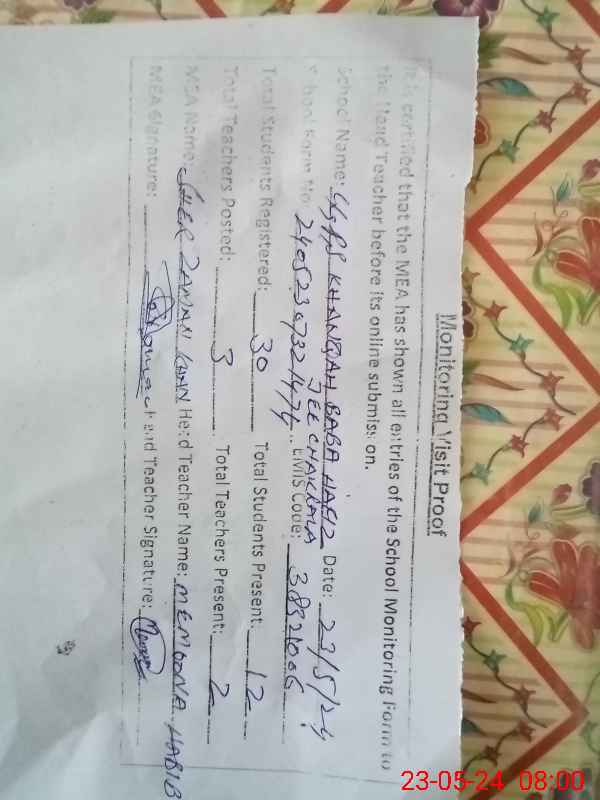 Monitoring Visit Proof
It is certified that the MEA has shown all entries of the School Monitoring Form to
the Head Teacher before its online submission.
School Name: GGPS KHANQAH BABA HAFIZ Date: 23/5/24
JEE CHAKRALA
School Form No: EMIS Code: 38321006
Total Students Registered: 30 Total Students Present: 12
Total Teachers Posted: 3 Total Teachers Present: 2
MEA Name: SHER ZAMAN KHAN Head Teacher Name: MEMOONA HABIB
MEA Signature: Head Teacher Signature:
23-05-24 08:00